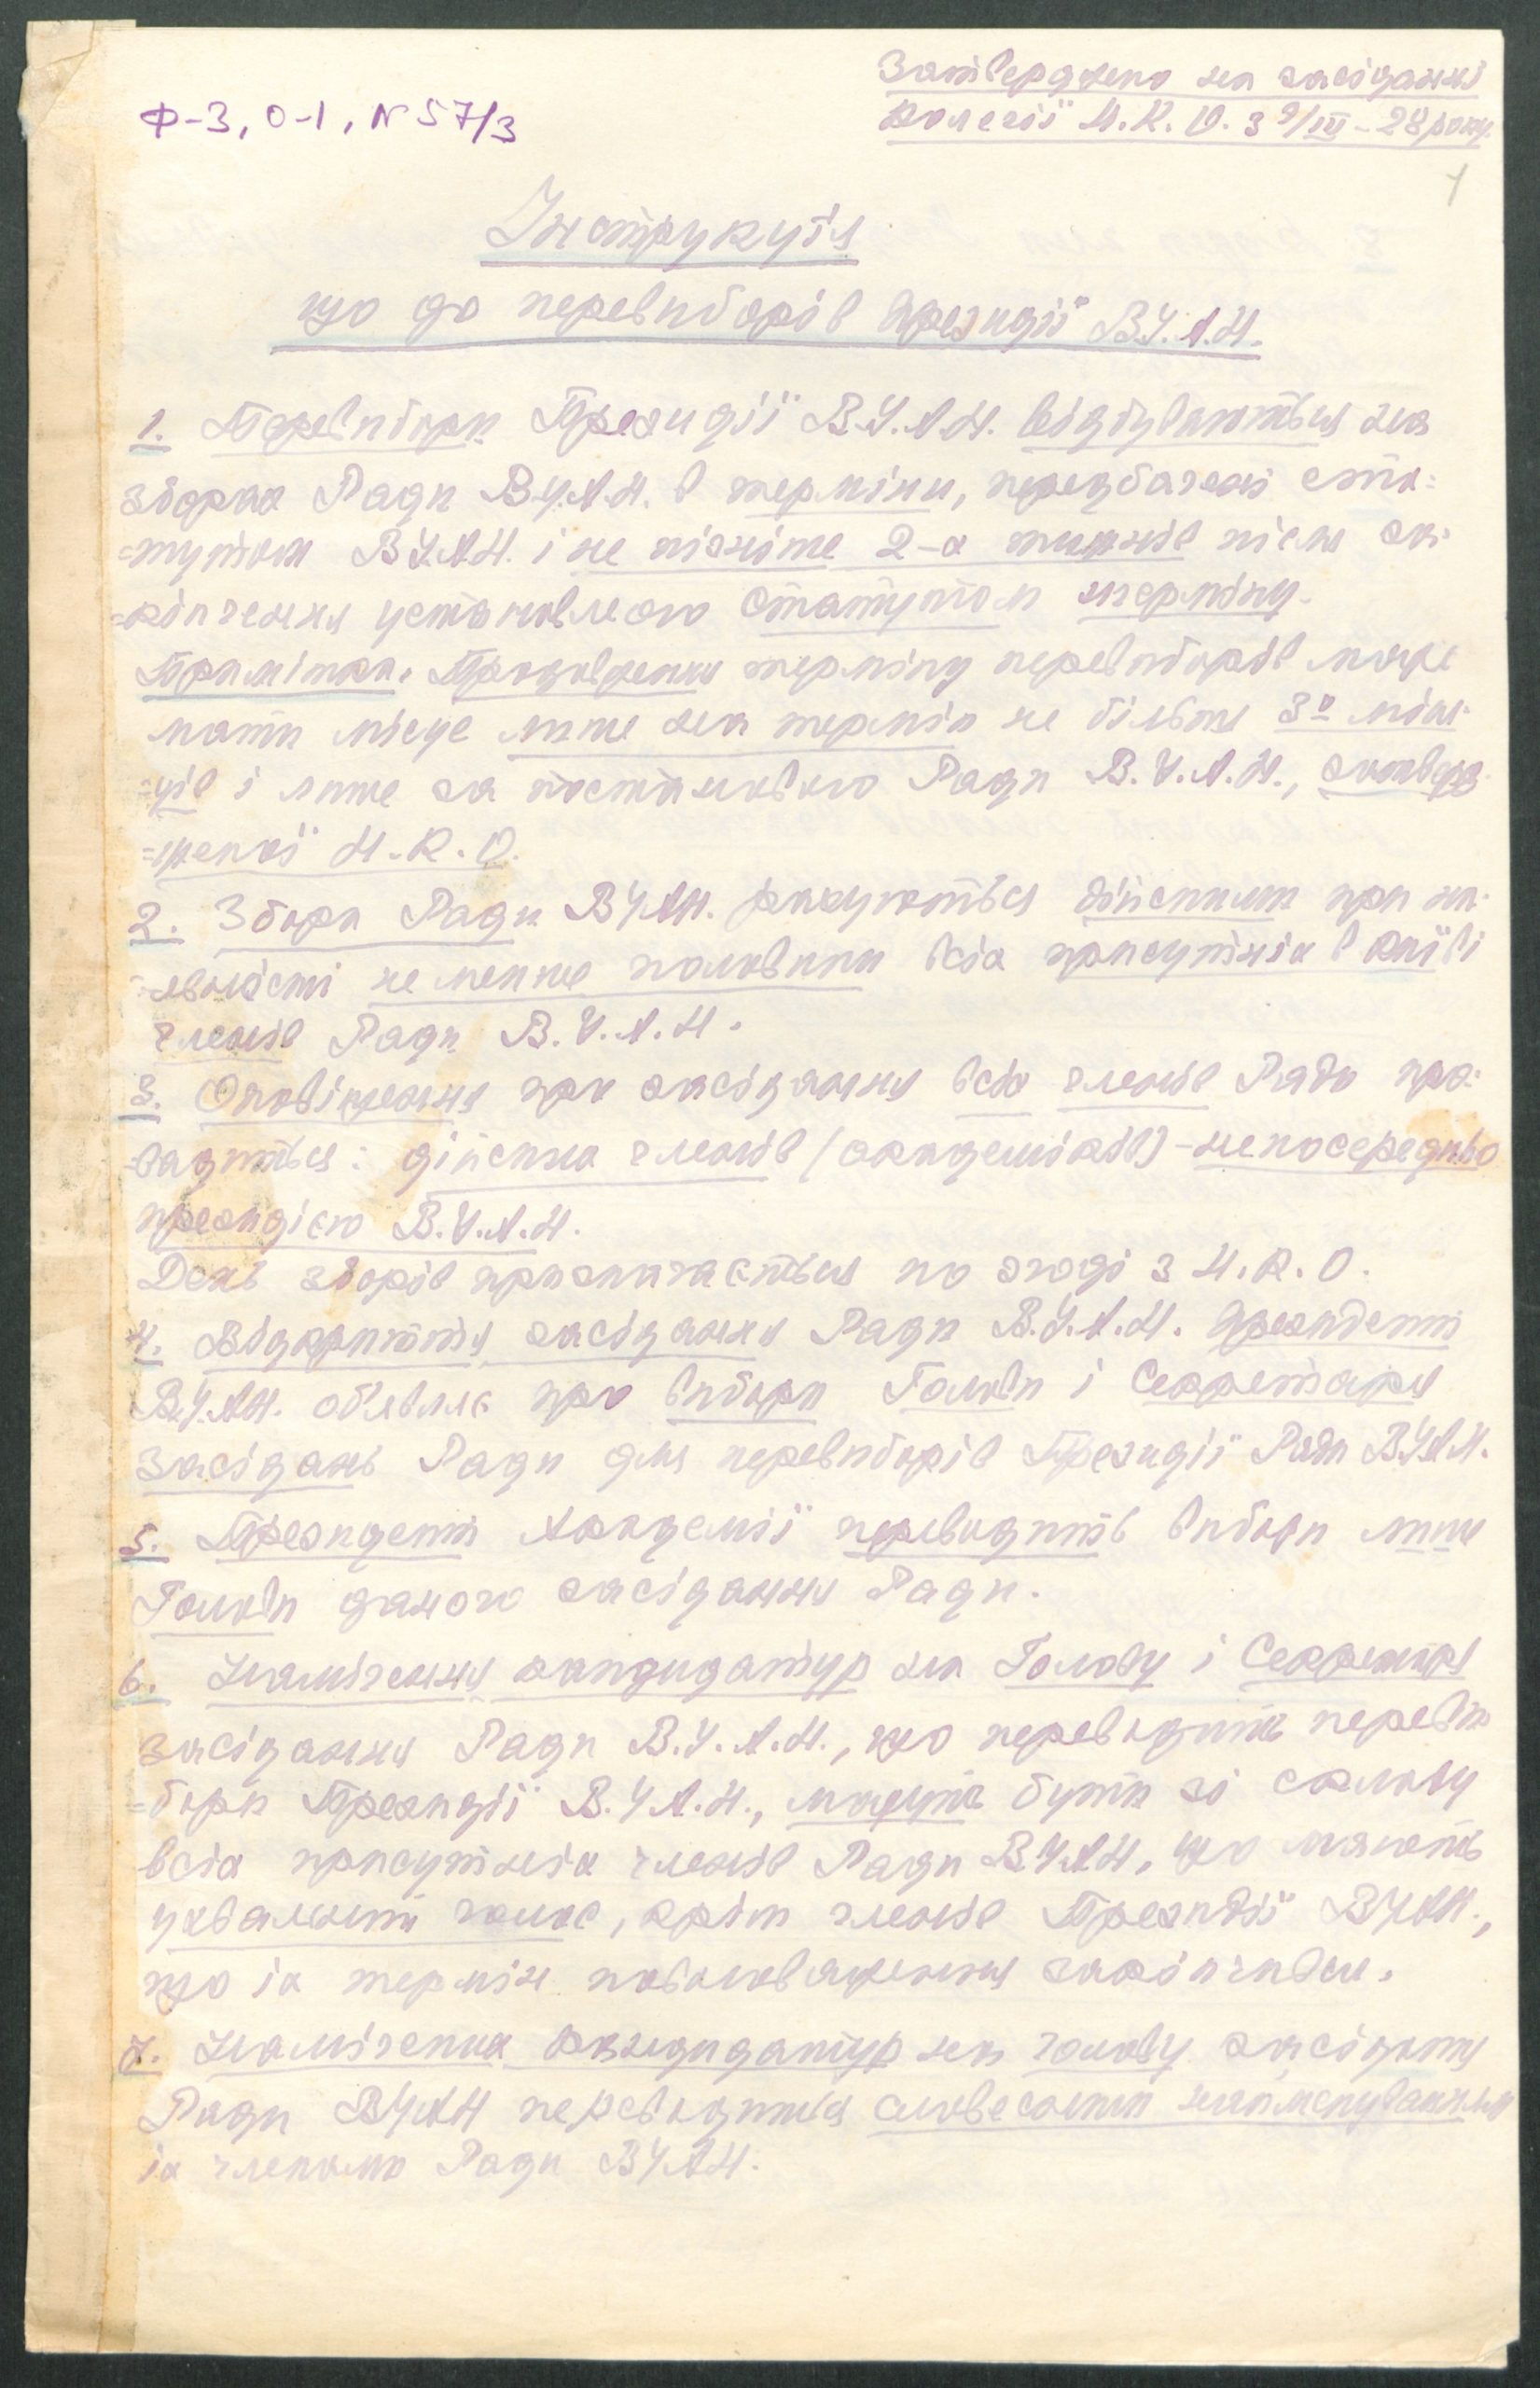 Затверджено на засіданні
Колегії Н.К.О. з 9/III-28 року.
Ф-3, О-1, N 57/3
1
Інструкція
що до перевиборів Президії В.У.А.Н.
1. Перевибори Президії В.У.А.Н. відбуваються на
зборах Ради В.У.А.Н. в терміни, передбачені ста=
=тутом В.У.А.Н. і не пізніше 2-х тижнів після за=
=кінчення установленого Статутом терміну.
Примітка. Продовження терміну перевиборів може
мати місце лише на термін не більше 3х міся=
=ців і лише за постановою Ради В.У.А.Н., затверд=
=женої Н.К.О.
2. Збори Ради ВУАН. рахуються дійсними при на=
=явності не менше половини всіх присутніх в Київі
членів Ради В.У.А.Н.
3. Оповіщення про засідання всіх членів Ради про=
=вадиться: дійсних членів (академіків) - непосередньо
президією В.У.А.Н.
День зборів призначається по згоді з Н.К.О.
4. Відкриття засідання Ради В.У.А.Н. Президент
В.У.А.Н. об'являє про вибори Голови і Секретаря
засідань Ради для перевиборів Президії Ради ВУАН.
5. Президент Академії переводить вибори лише
Голови даного засідання Ради.
6. Намічення кандидатур на Голову і Секретаря
засідання Ради В.У.А.Н., що переводить переви=
=бори Президії В.У.А.Н., можуть бути зі складу
всіх присутніх членів Ради ВУАН, що мають
ухвальний голос, крім членів Президії ВУАН.,
що їх термін повноваження закінчився.
7. Намічення кандидатур на голову засідання
Ради ВУАН переводиться словесним найменуванням
їх членами Ради ВУАН.